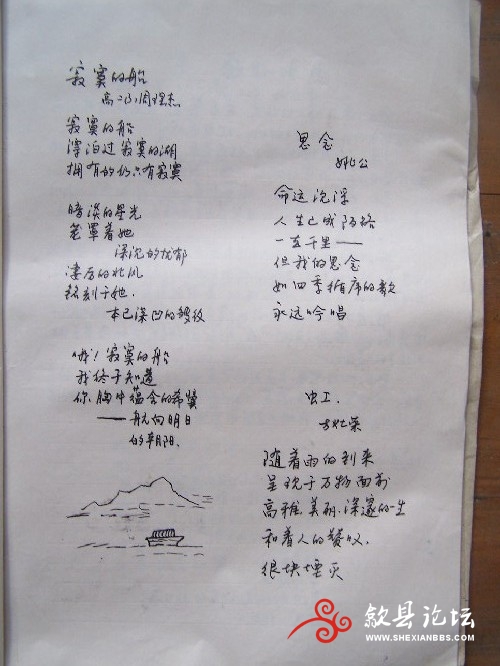 寂寞的船
高二(3)周理杰
寂寞的船
漂泊过寂寞的湖
拥有的仍只有寂寞
暗淡的星光
笼罩着她
深沉的忧郁
凄厉的北风
铭刻于她
本已深凹的皱纹
哦！寂寞的船
我终于知道
你胸中蕴含的希冀
——航向明日
的朝阳、
思念
命运沉浮
人生已成陌路
一去千里——
但我的思念
如四季循序的歌
永远吟唱
虫工.
随着雨的到来
呈现于万物面前
高雅、美丽、深邃的一生
和着人的赞叹、
很快堙灭
歙县论坛
WWW.SHEXIANBBS.COM